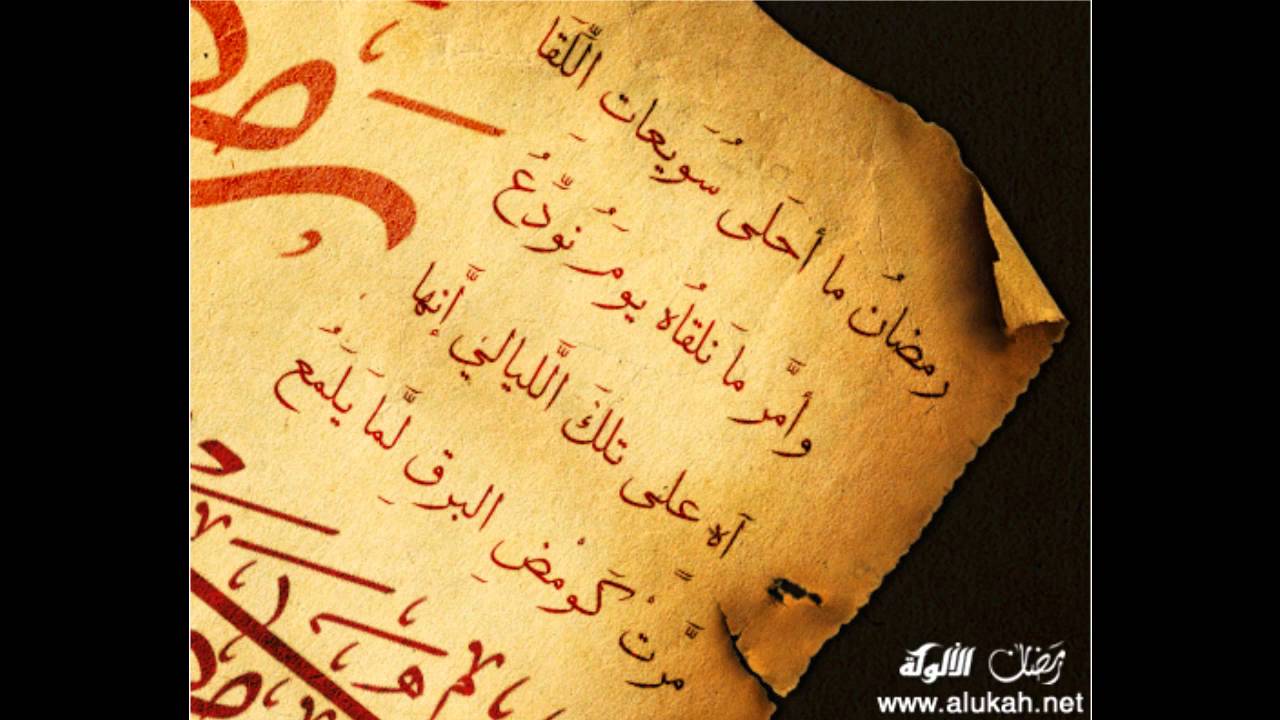 رمضانُ ما أحَلى سُوَيعات اللَّقا
وأمرَّ ما نلقاهُ يومَ نُوَدِّعُ
آه على تلكَ اللَّيالي إنَّها
مرَّت كَومْضِ البرقِ لمَّا يَلمَعُ
رمضان الألوكة
www.alukah.net